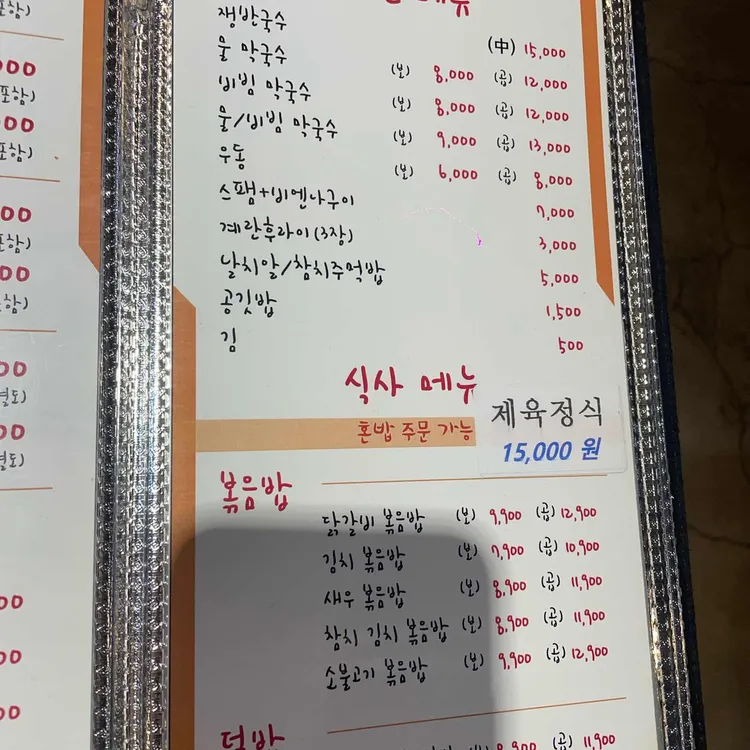 포함)
000
포함)
00
포함)
00
포함)
00
함)
00
별도)
00
별도)
00
00
00
메뉴
쟁반국수 (中) 15,000
물 막국수 (보) 8,000 (곱) 12,000
비빔 막국수 (보) 8,000 (곱) 12,000
물/비빔 막국수 (보) 9,000 (곱) 13,000
우동 (보) 6,000 (곱) 8,000
스팸+비엔나구이 7,000
계란후라이(3장) 3,000
날치알/참치주먹밥 5,000
공깃밥 1,500
김 500
식사 메뉴
혼밥 주문 가능
제육정식
15,000 원
볶음밥
닭갈비 볶음밥 (보) 9,900 (곱) 12,900
김치 볶음밥 (보) 7,900 (곱) 10,900
새우 볶음밥 (보) 8,900 (곱) 11,900
참치 김치 볶음밥 (보) 8,900 (곱) 11,900
소불고기 볶음밥 (보) 9,900 (곱) 12,900
덮밥
(보) 8,900 (곱) 11,900